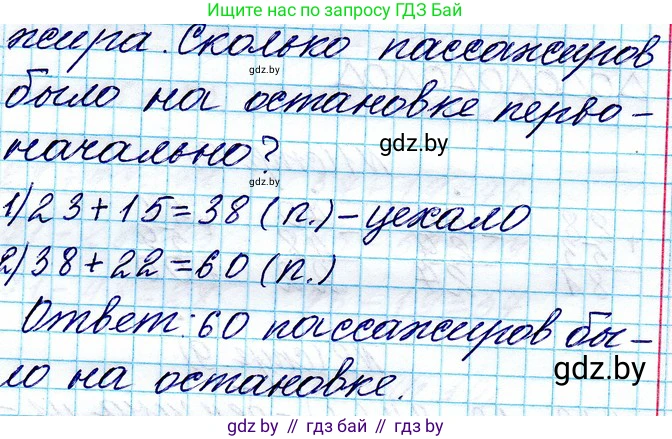 Ищите нас по запросу ГДЗ Бай
жира. Сколько пассажиров
gdz.by
было на остановке перво-
gdz.by
начально?
gdz.by
1) 23 + 15 = 38 (п.) – уехало
2) 38 + 22 = 60 (п.)
Ответ: 60 пассажиров бы-
ло на остановке.
gdz.by
gdz by // гдз бай // gdz by